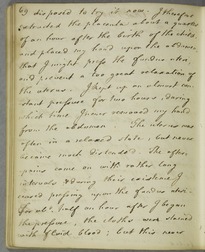 69 disposed to try it now. I therefore
extracted the placenta about a quarter
of an hour after the birth of the child
and placed my hand upon the abdomen
that I might press the fundus uteri
and prevent a too great relaxation of
the uterus. I kept up an almost con-
stant pressure for two hours, during
which time, I never removed my hand
from the abdomen. The uterus was
often in a relaxed state, but never
became much distended. The after-
pains came on with rather long
intervals & during their existence I
ceased pressing upon the fundus uteri.
For about half an hour after I began
the pressure, the clothes were stained
with florid blood; but this never